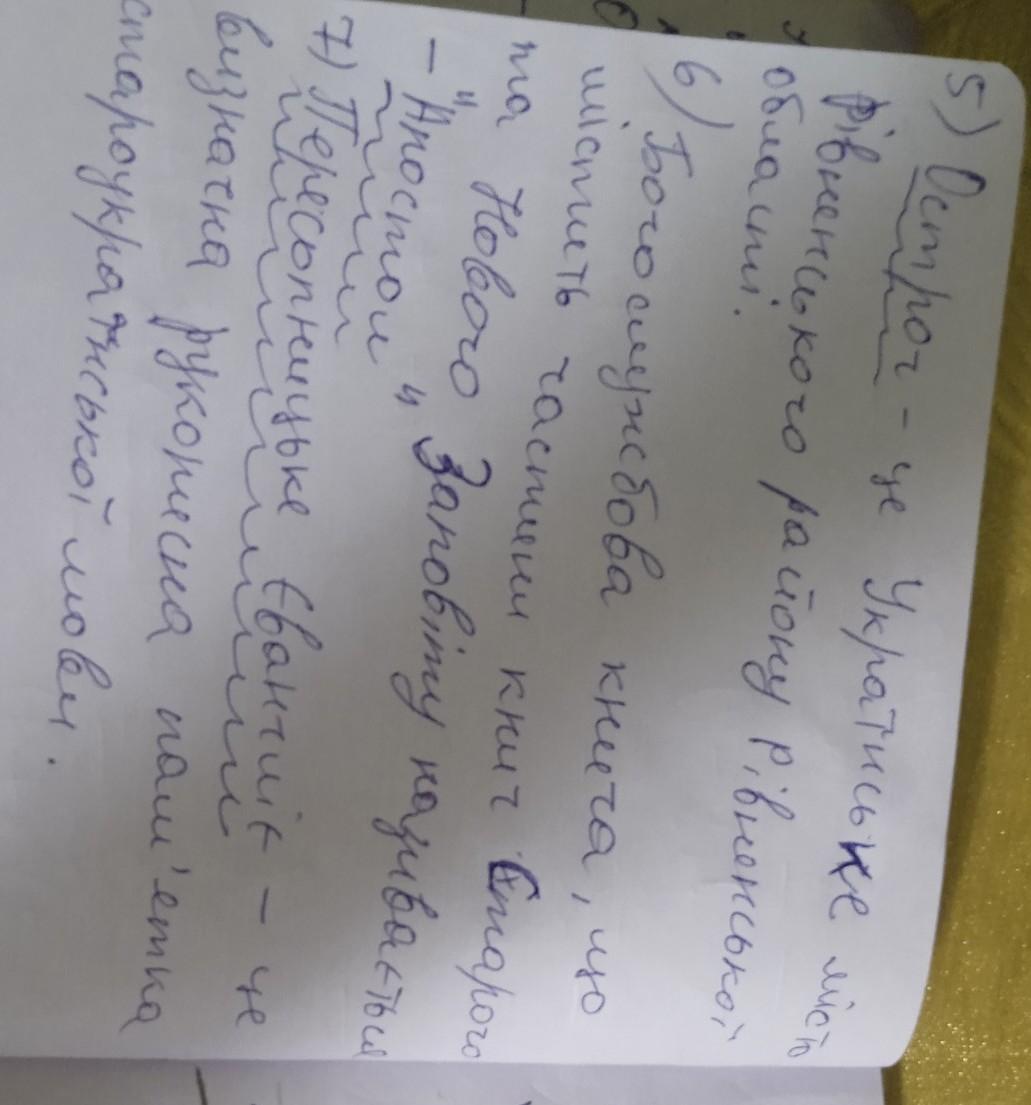 5) Острог – це Українське місто
Рівненського району Рівненської
області.
6) Богослужбова книга, що
містить частини книг Старого
та Нового Заповіту називається
– "Апостол"
7) Пересопницьке Євангеліє – це
визначна рукописна пам'ятка
староукраїнської мови.